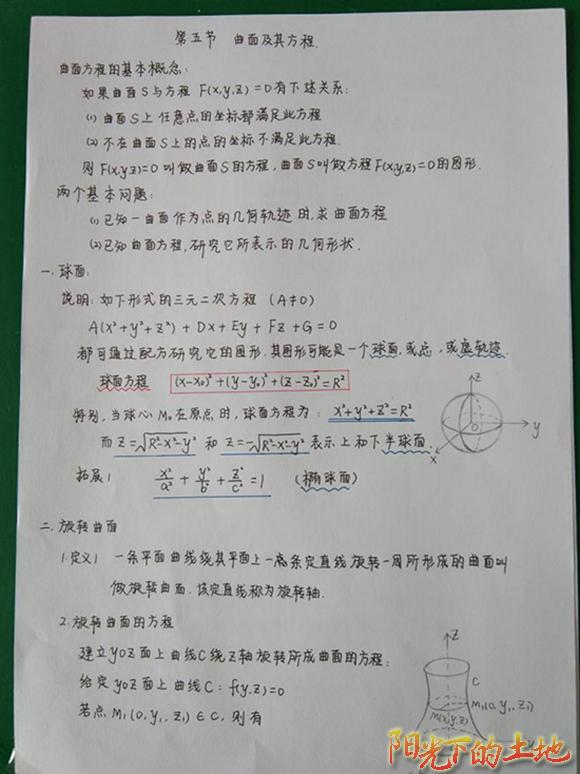 第五节 曲面及其方程.
曲面方程的基本概念:
如果曲面S与方程 F(x,y,z)=0有下述关系:
(1) 曲面S上任意点的坐标都满足此方程
(2) 不在曲面S上的点的坐标不满足此方程.
则 F(x,y,z)=0 叫做曲面S的方程,曲面S叫做方程F(x,y,z)=0的图形.
两个基本问题:
(1) 已知一曲面作为点的几何轨迹时,求曲面方程
(2) 已知曲面方程,研究它所表示的几何形状.
一.球面:
说明:如下形式的三元二次方程 (A≠0)
A(x²+y²+z²)+Dx+Ey+Fz+G=0
都可通过配方研究它的图形.其图形可能是一个球面,或点,或虚轨迹.
球面方程 (x-x₀)²+(y-y₀)²+(z-z₀)²=R²
特别,当球心M₀在原点时,球面方程为: x²+y²+z²=R²
而 z=√R²-x²-y² 和 z=-√R²-x²-y² 表示上和下半球面.
z
o
y
x
拓展1 x²/a²+y²/b²+z²/c²=1 (椭球面)
二.旋转曲面
1.定义1 一条平面曲线绕其平面上一条定直线旋转一周所形成的曲面叫
做旋转曲面.该定直线称为旋转轴.
2.旋转曲面的方程
建立yoz面上曲线C绕z轴旋转所成曲面的方程:
给定yoz面上曲线C: f(y,z)=0
若点M₁(0,y₁,z₁)∈C,则有
z
C
M₁(0,y₁,z₁)
M(x,y,z)
阳光下的土地